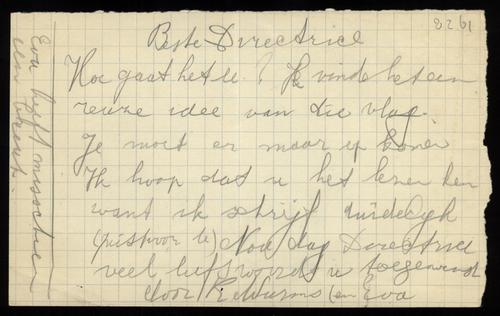 8261
Beste Directrice
Hoe gaat het u? Ik vinde het een
reuze idee van die vlag.
Je moet er maar op komen
Ik hoop dat u het lezen ken
want ik schrijf duidelijk
(juist voor u) Nou dag Directrice
veel liefs wordt u toegewenst
door R. Wurms (en Eva
Eva heeft misschien
een